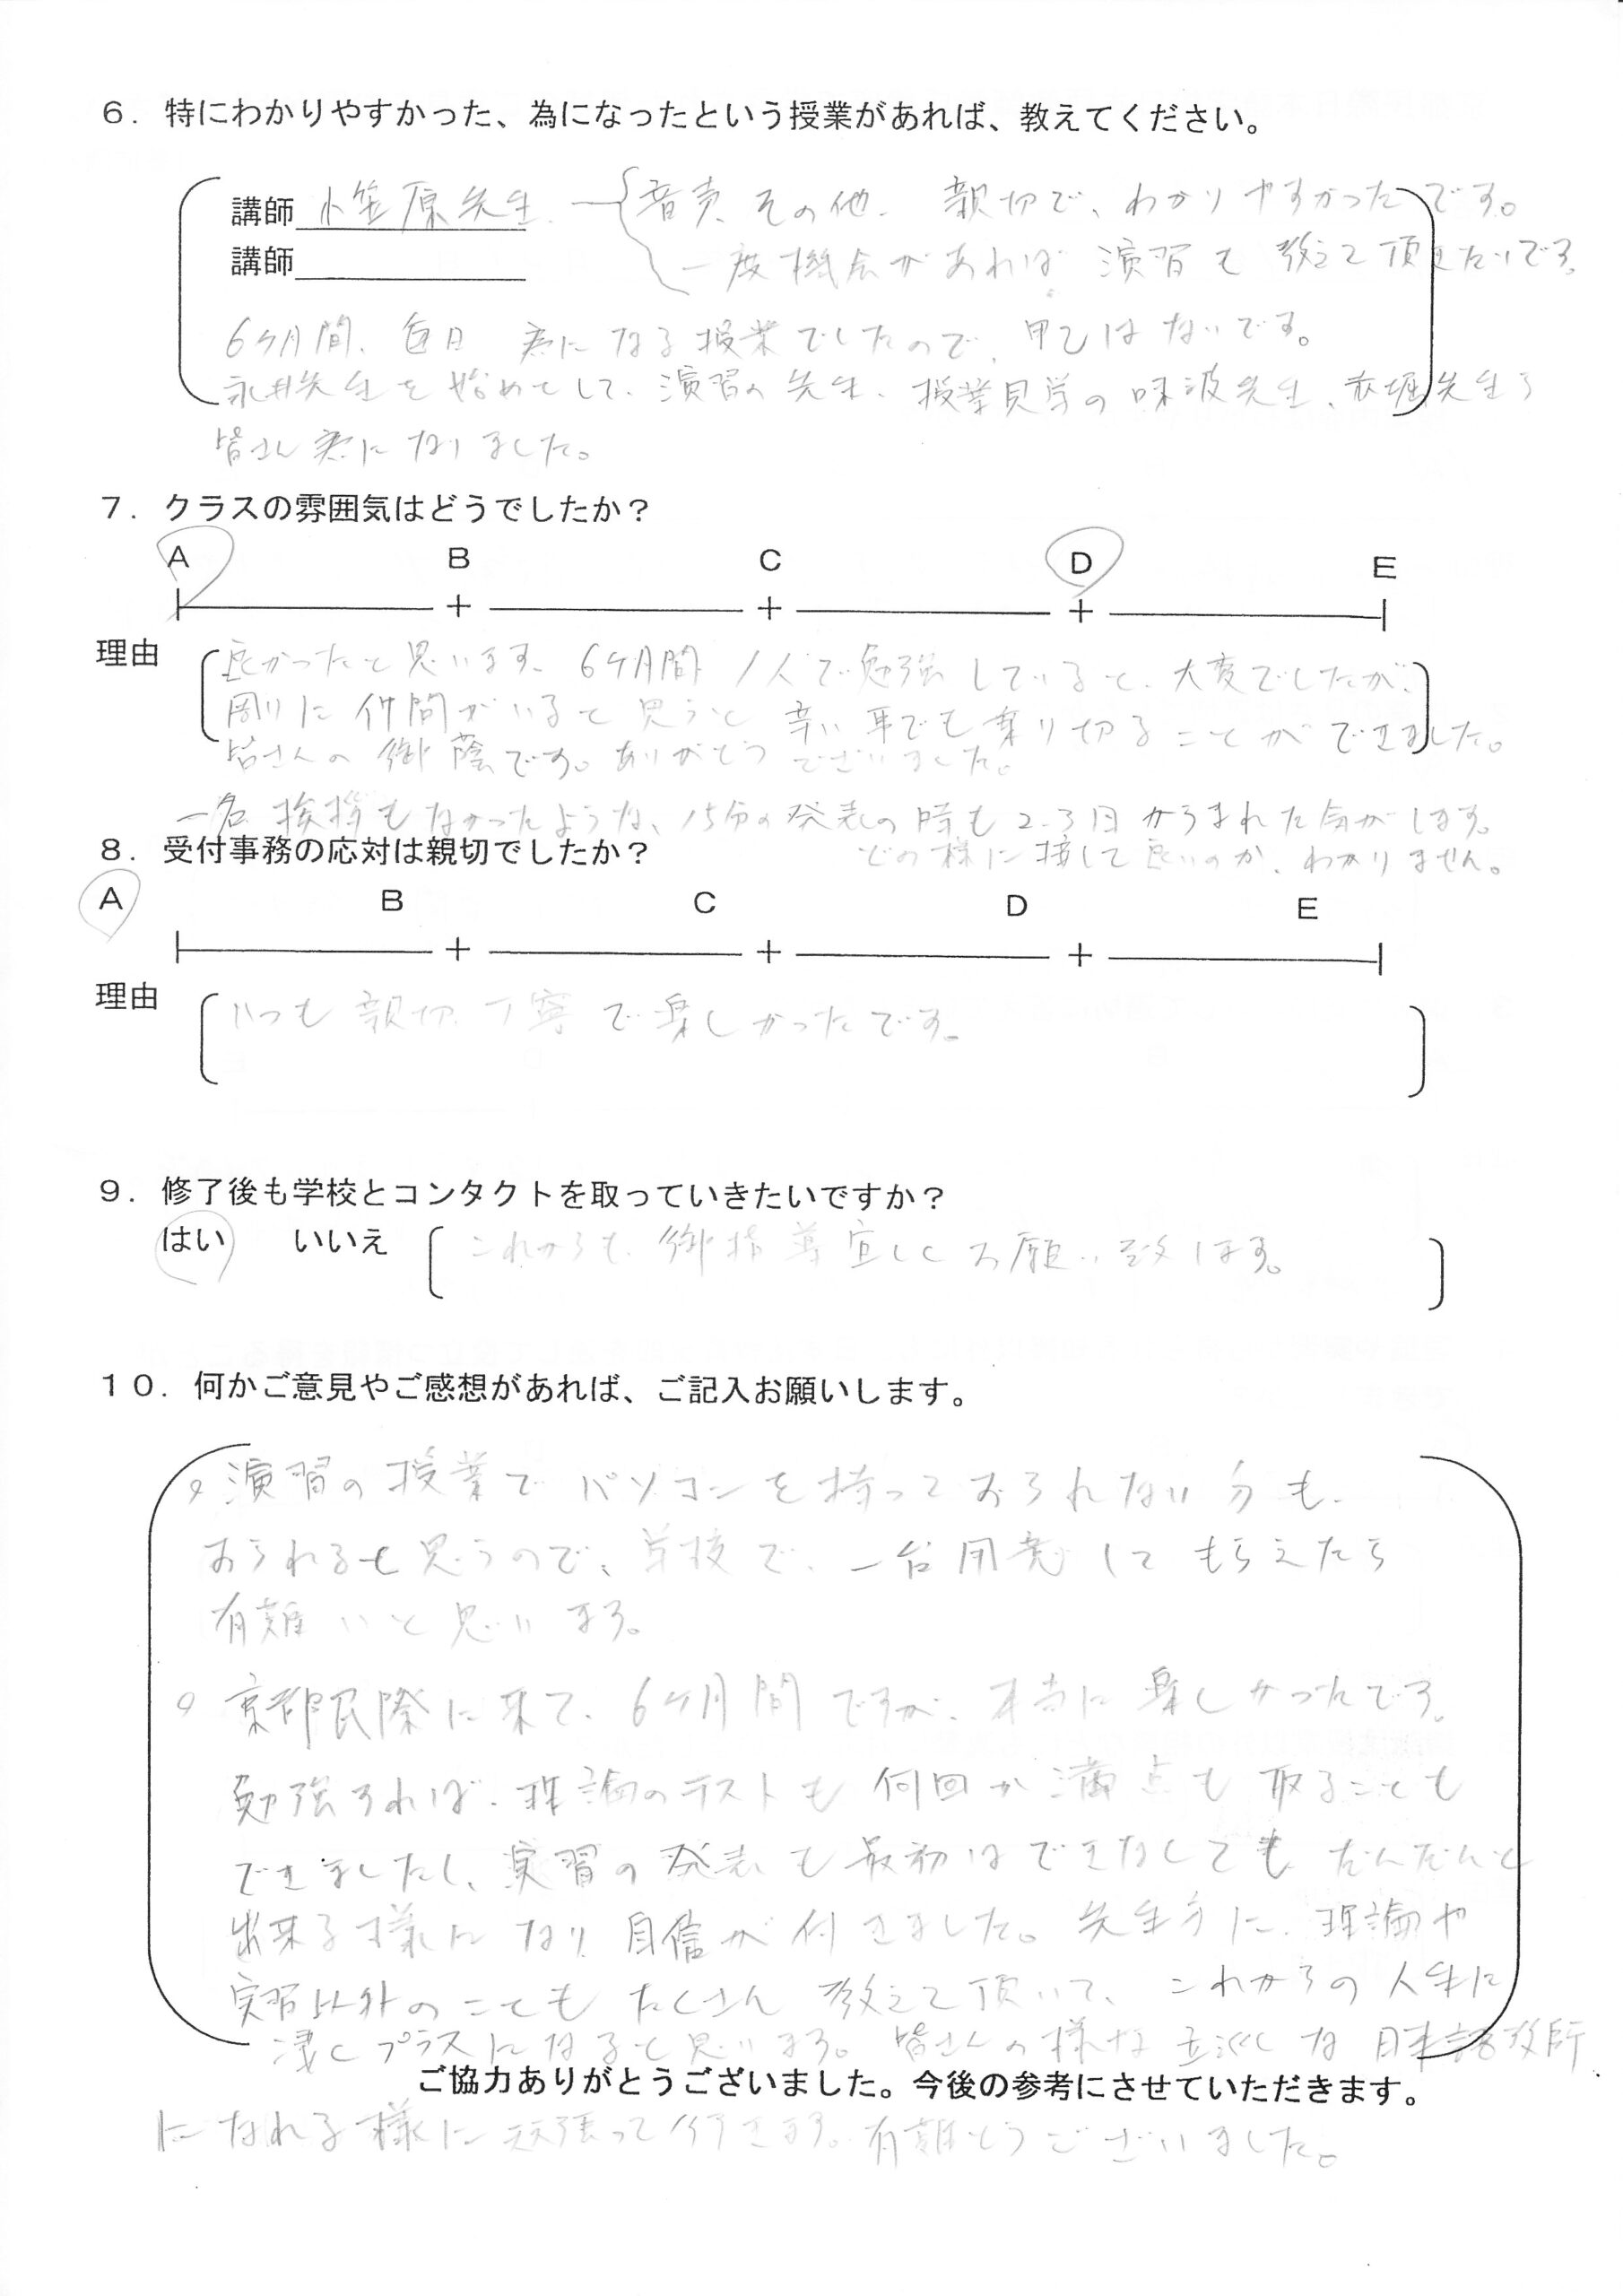 6．特にわかりやすかった、為になったという授業があれば、教えてください。
講師 小笠原先生 音声、その他、親切で、わかりやすかったです。
講師 一度機会があれば演習も教えて頂きたいです。
6ヶ月間、毎日為になる授業でしたので、甲乙はないです。
永井先生を始めとして、演習の先生、授業見学の味波先生、赤堀先生ら
皆さん為になりました。
7．クラスの雰囲気はどうでしたか？
A B C D E
理由 良かったと思います。6ヶ月間1人で勉強していると、大変でしたが、
周りに仲間がいると思うと辛い事でも乗り切ることができました。
皆さんの御蔭です。ありがとうございました。
一名挨拶もなかったような、15分の発表の時も2.3回からまれた気がします。
どの様に接して良いのか、わかりません。
8．受付事務の応対は親切でしたか？
A B C D E
理由 いつも親切、丁寧で楽しかったです。
9．修了後も学校とコンタクトを取っていきたいですか？
はい いいえ これからも、御指導宜しくお願い致します。
10．何かご意見やご感想があれば、ご記入お願いします。
演習の授業でパソコンを持っておられない方も、
おられると思うので、学校で、一台用意してもらえたら
有難いと思います。
京都民際に来て、6ヶ月間ですが、本当に楽しかったです。
勉強すれば、理論のテストも何回か満点も取ることも
できましたし、実習の発表も最初はできなくてもだんだんと
出来る様になり自信が付きました。先生方に、理論や
実習以外のこともたくさん教えて頂いて、これからの人生に
凄くプラスになると思います。皆さんの様な立派な日本語教師
ご協力ありがとうございました。今後の参考にさせていただきます。
になれる様に頑張って行きます。有難とうございました。